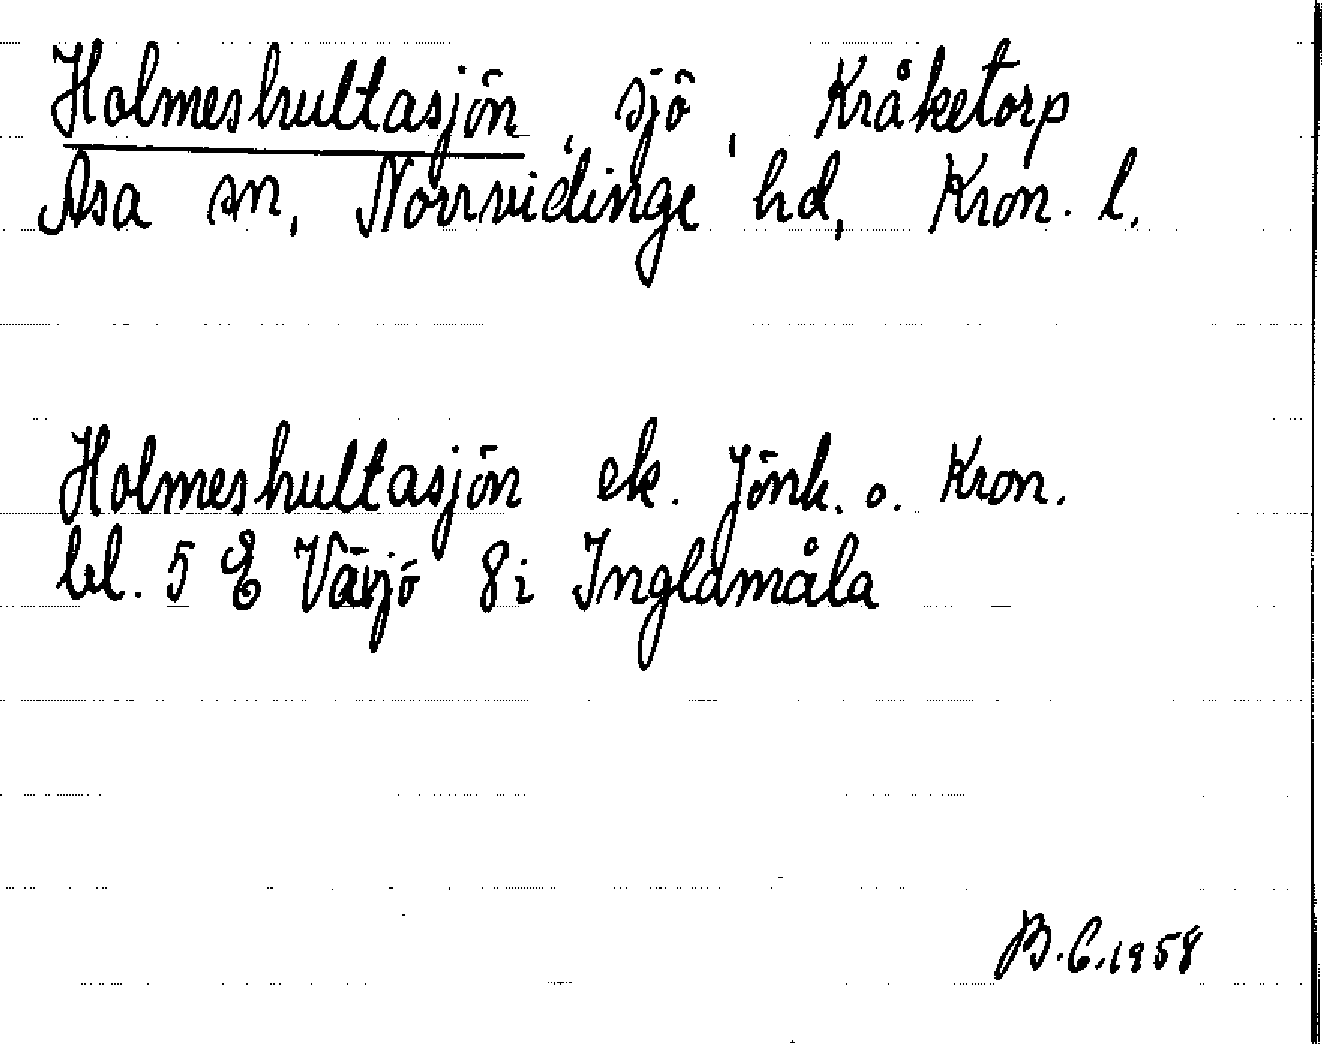 Holmeshultasjön, sjö, Kråketorp
Asa sn, Norrvidinge hd, Kron. l.
Holmeshultasjön ek. Jönk. o. Kron.
bl. 5 E Växjö 8i Inglamåla
B.C. 1958